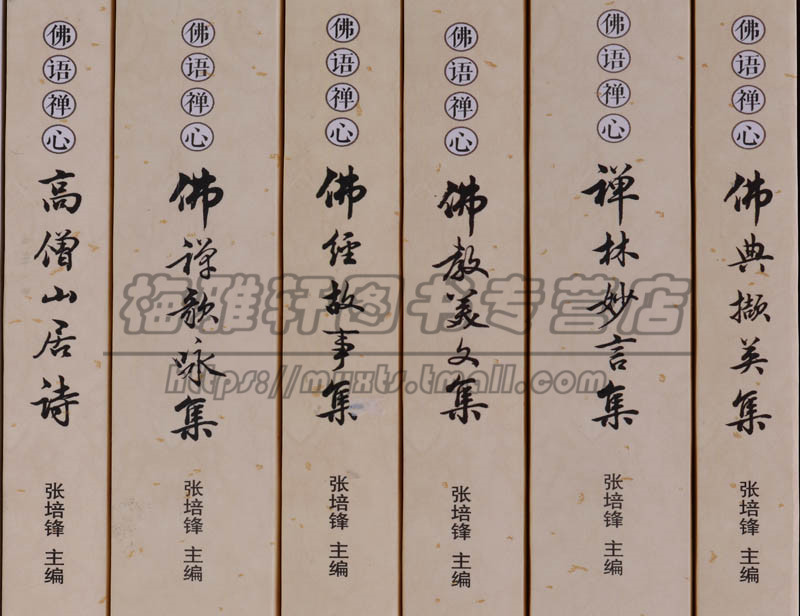 佛语禅心
高僧山居诗
张培锋 主编
佛语禅心
佛禅歌咏集
张培锋 主编
佛语禅心
佛经故事集
张培锋 主编
佛语禅心
佛教美文集
张培锋 主编
佛语禅心
禅林妙言集
张培锋 主编
佛语禅心
佛典撷英集
张培锋 主编
梅雅轩图书专营店
https://myxts.tmall.com